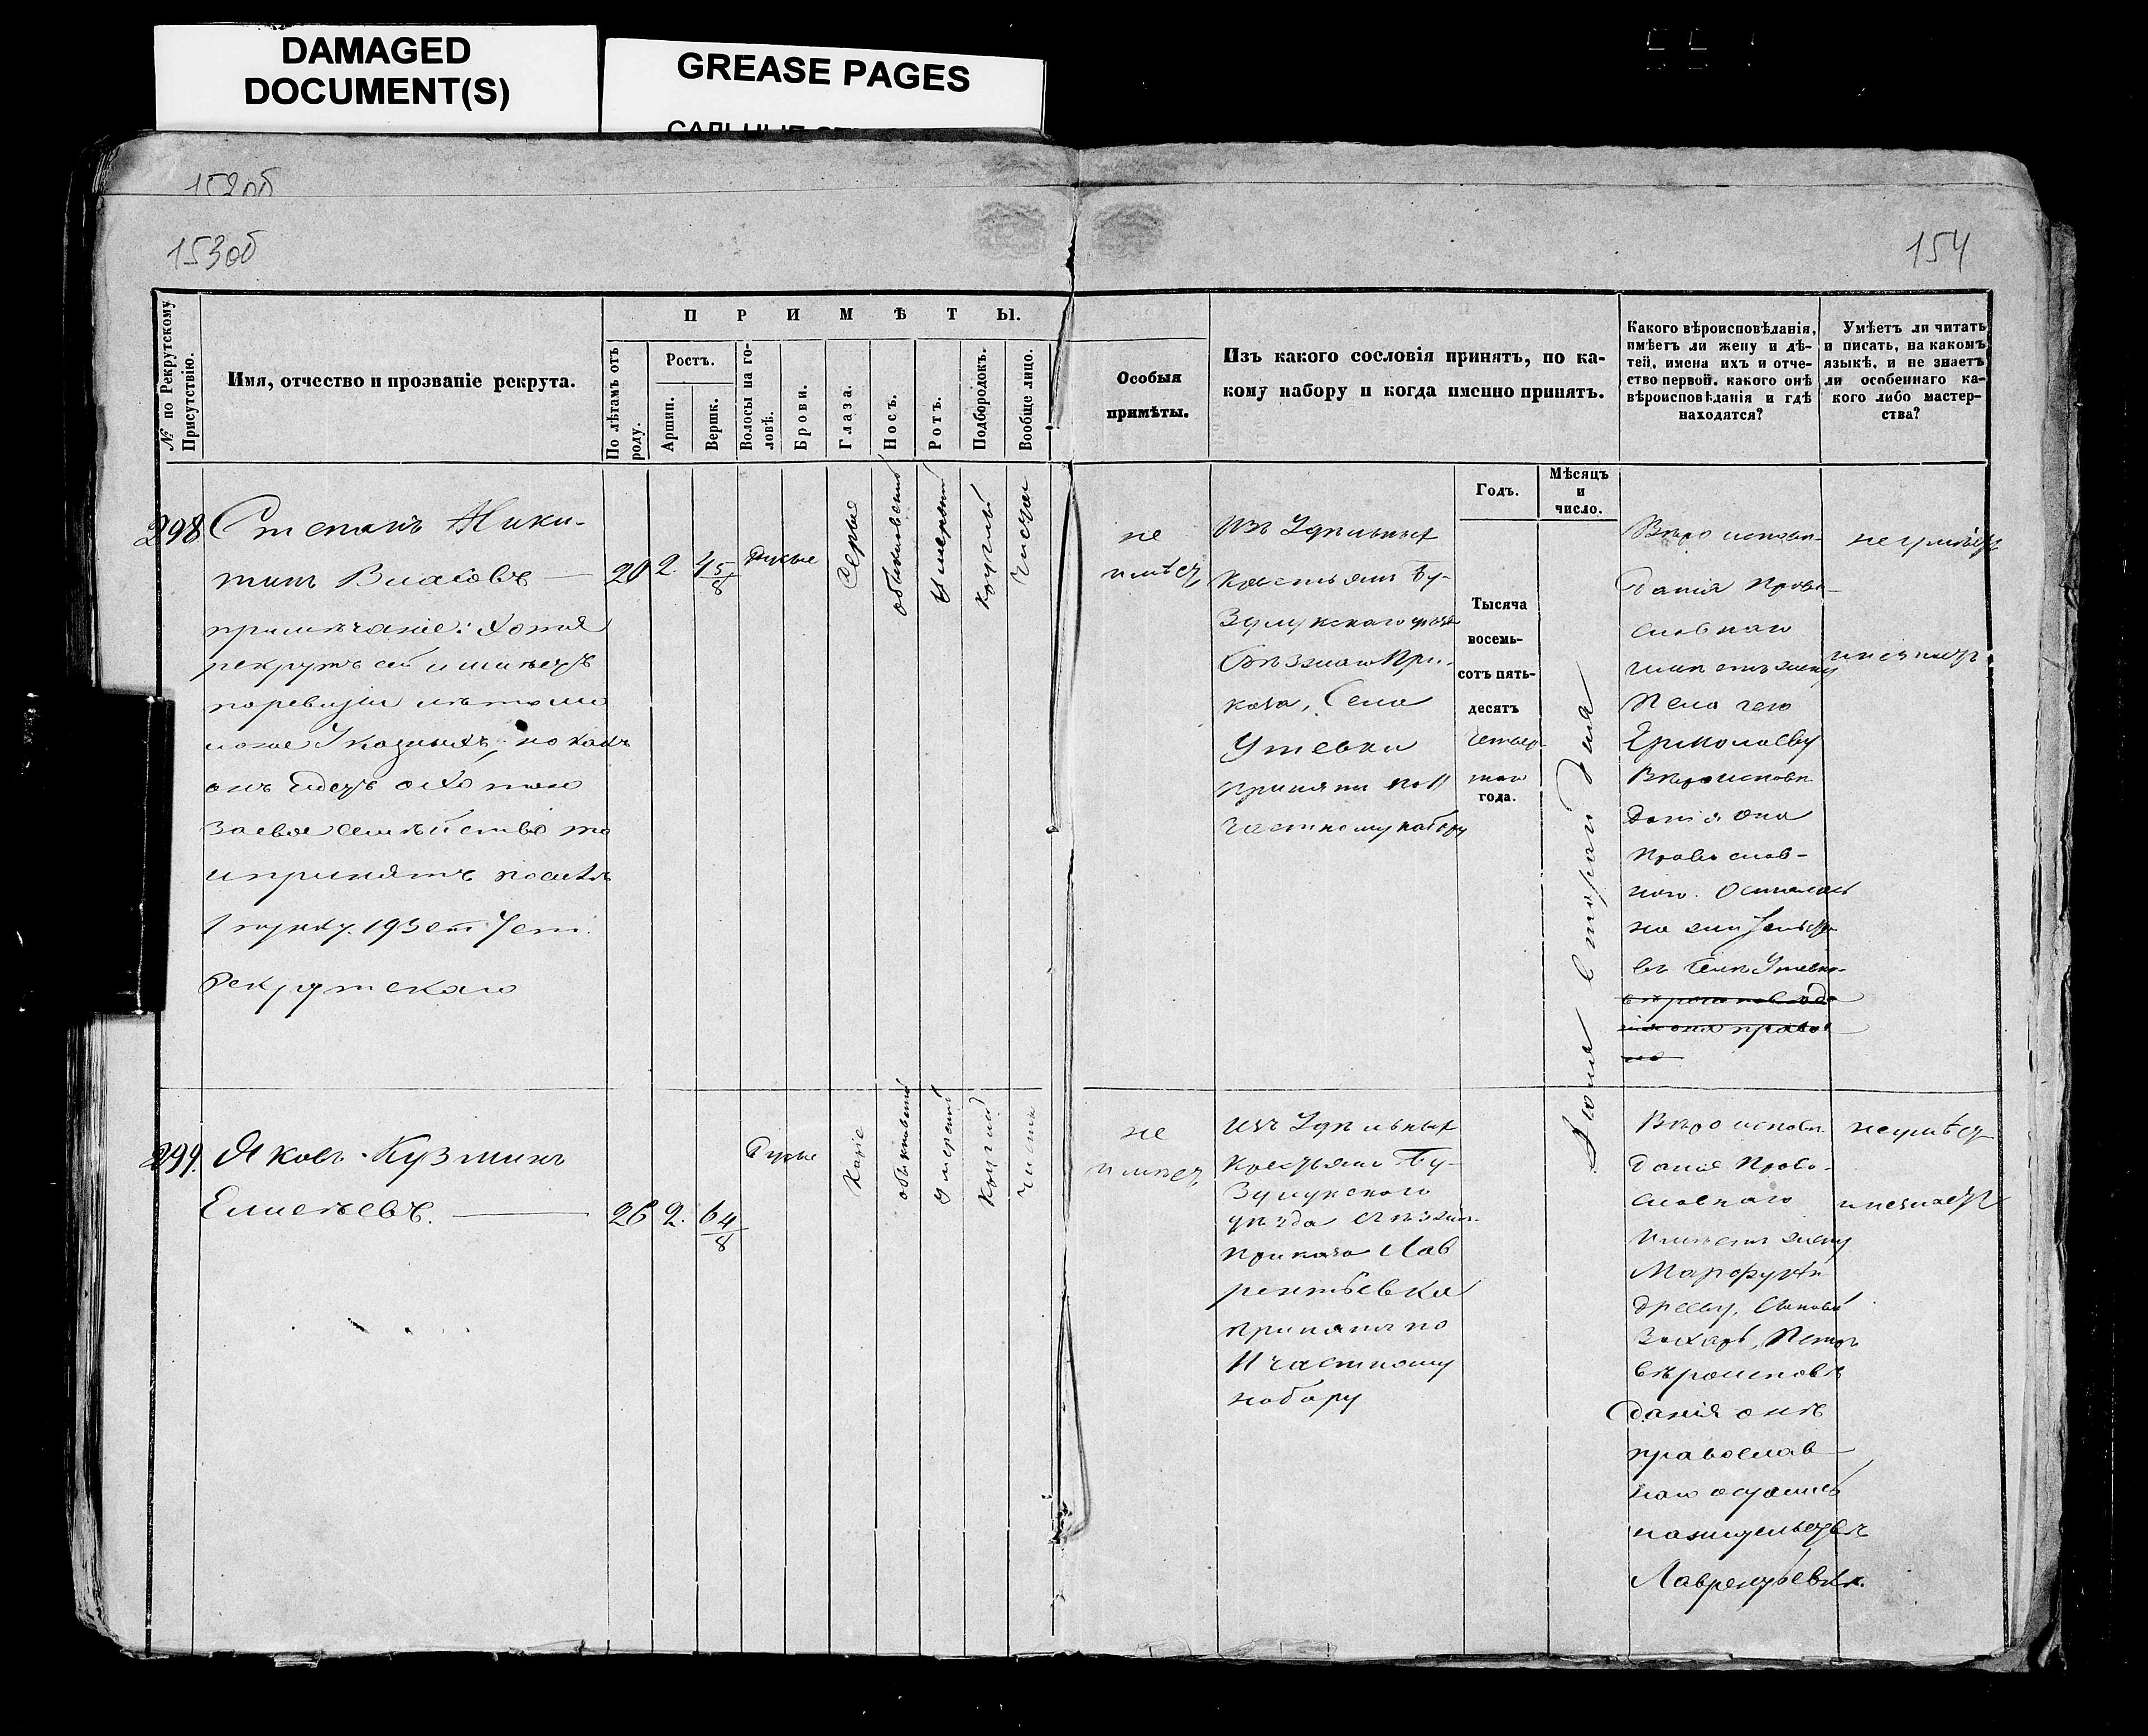 DAMAGED
DOCUMENT(S)
GREASE PAGES
152об
153об
154
№ по Рекрутскому
Присутствію.
Имя, отчество и прозваніе рекрута.
ПРИМѢТЫ.
По лѣтамъ отъ
роду.
Ростъ.
Аршин.
Вершк.
Волосы на го-
ловѣ.
Брови.
Глаза.
Носъ.
Ротъ.
Подбородокъ.
Вообще лицо.
Особыя
примѣты.
Изъ какого сословія принятъ, по ка-
кому набору и когда именно принятъ.
Какого вѣроисповѣданія,
имѣетъ ли жену и дѣ-
тей, имена ихъ и отче-
ство первой, какого онѣ
вѣроисповѣданія и гдѣ
находятся?
Умѣетъ ли читать
и писать, на какомъ
языкѣ, и не знаетъ
ли особеннаго ка-
кого либо мастер-
ства?
Годъ.
Мѣсяцъ
и
число.
298
Степанъ Ники-
тинъ Власовъ
примѣчаніе: Хотя
рекрутъ сей имѣетъ
по ревизіи лѣта
но какъ
онъ идетъ охотою
за свое семейство то
и принятъ по силѣ
1 пункту. 193 ст. 7 ст.
Рекрутскаго
20
2.
4 5/8
Русые
Серые
обыкновенный
Умеренный
круглый
Чистое
не
имѣетъ
Изъ Удѣльныхъ
Крестьянъ Бу-
зулукскаго уѣзда
Съѣзжаго При-
каза, Села
Утевки
принятъ по 11
частному набору
Тысяча
восемь-
сотъ пять-
десятъ
четвер-
таго
года.
Іюля второй дня
Вѣроисповѣ-
данія Право-
славнаго
имѣетъ жену
Пелагею
Ермолаеву
Вѣроисповѣ
данія она
Православ-
наго. Осталась
на жительст.
въ селѣ Утевки
неумѣетъ
и незнаетъ
299
Яковъ Кузминъ
Елисеевъ.
26
2.
6 4/8
Русые
Каріе
обыкновенный
Умеренный
Круглый
Чистое
не
имѣетъ
Изъ Удѣльныхъ
Крестьянъ Бу-
зулукскаго
уѣзда Съѣзжаг.
Приказа Лав
рентьевки
принятъ по
11 частному
набору
Вѣроисповѣ
данія Право-
славнаго
Имѣетъ жену
Марфу Ан
дрееву, Сыновей
Захаръ, Петръ
вѣроисповѣ
данія онѣ
православ
наго остались
на жительствѣ
Лаврентьевкѣ.
неумѣетъ
и незнаетъ